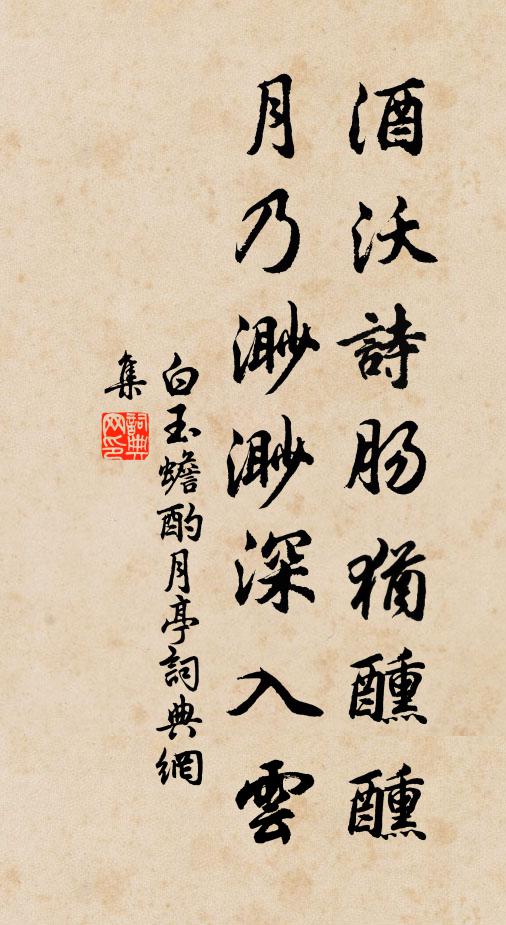 酒沃詩肠猶醺醺
月乃渺渺深入雲
白玉蟾酌月亭詞典網
集
詞典
网印